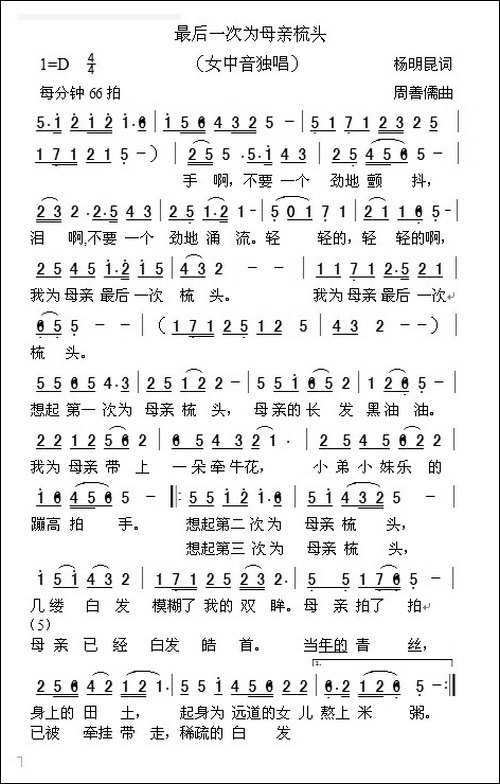 最后一次为母亲梳头
1=D 4/4 （女中音独唱） 杨明昆词
每分钟 66 拍 周善儒曲
5·1 2 1 2 1·6 | 1 5 6 4 3 2 5 - | 5 1 7 1 2 3 2 5 |
1 7 1 2 1 5 - ） | 2 5 5·5·1 4 3 | 2 5 4 5 6 5 - |
手 啊，不要 一个 劲地 颤 抖，
2 3 2·2·5 4 3 | 2 5 5·2 1 - | 5 0 1 7 1 | 2 1 1 6 5 - |
泪 啊，不要 一个 劲地 涌 流。轻 轻的，轻 轻的啊，
2 5 4 5 1·2 1 5 | 4 3 2 - - | 1 1 7 1 2·5 2 1 |
我为 母亲 最后 一次 梳 头。 我为 母亲 最后 一次
6 5 5 - - | （ 1 7 1 2 5 1 2 5 | 4 3 2 - - ） |
梳 头。
5 5 6 5 4·3 | 2 5 1 2 2 - | 5 5 1 6 5 2 | 1 2 6 5 - |
想起 第一 次为 母亲 梳 头， 母亲的 长 发 黑油 油。
2 2 1 2 5 6 2 | 6 5 4 3 2 1· | 2 5 4 5 6 2 2 |
我为 母亲 带 上 一朵 牵牛花， 小弟 小妹 乐 的
1 6 4 5 6 5 - :5 5 1 2 1·6 | 5 1 4 3 2 - |
蹦高 拍 手。 想起 第二 次为 母亲 梳 头，
想起 第三 次为 母亲 梳 头，
1 5 1 4 3 2 | 1 7 1 2 5 3 2· | 5 5 1 7 1 2 |
几缕 白发 模糊了 我的 双 眸。母 亲 拍了 拍
(5)
母 亲 已 经 白发 皓 首。 当年的 青 丝，
1.
2 5 6 0 4 2 1 2 1· | 5 5 1 4 5 6 2 2 | 6·2 1 2 6 5 - :
身上的 田 土， 起身为 远道的 女 儿 熬上 米 粥。
已被 牵挂 带 走，稀疏的 白 发